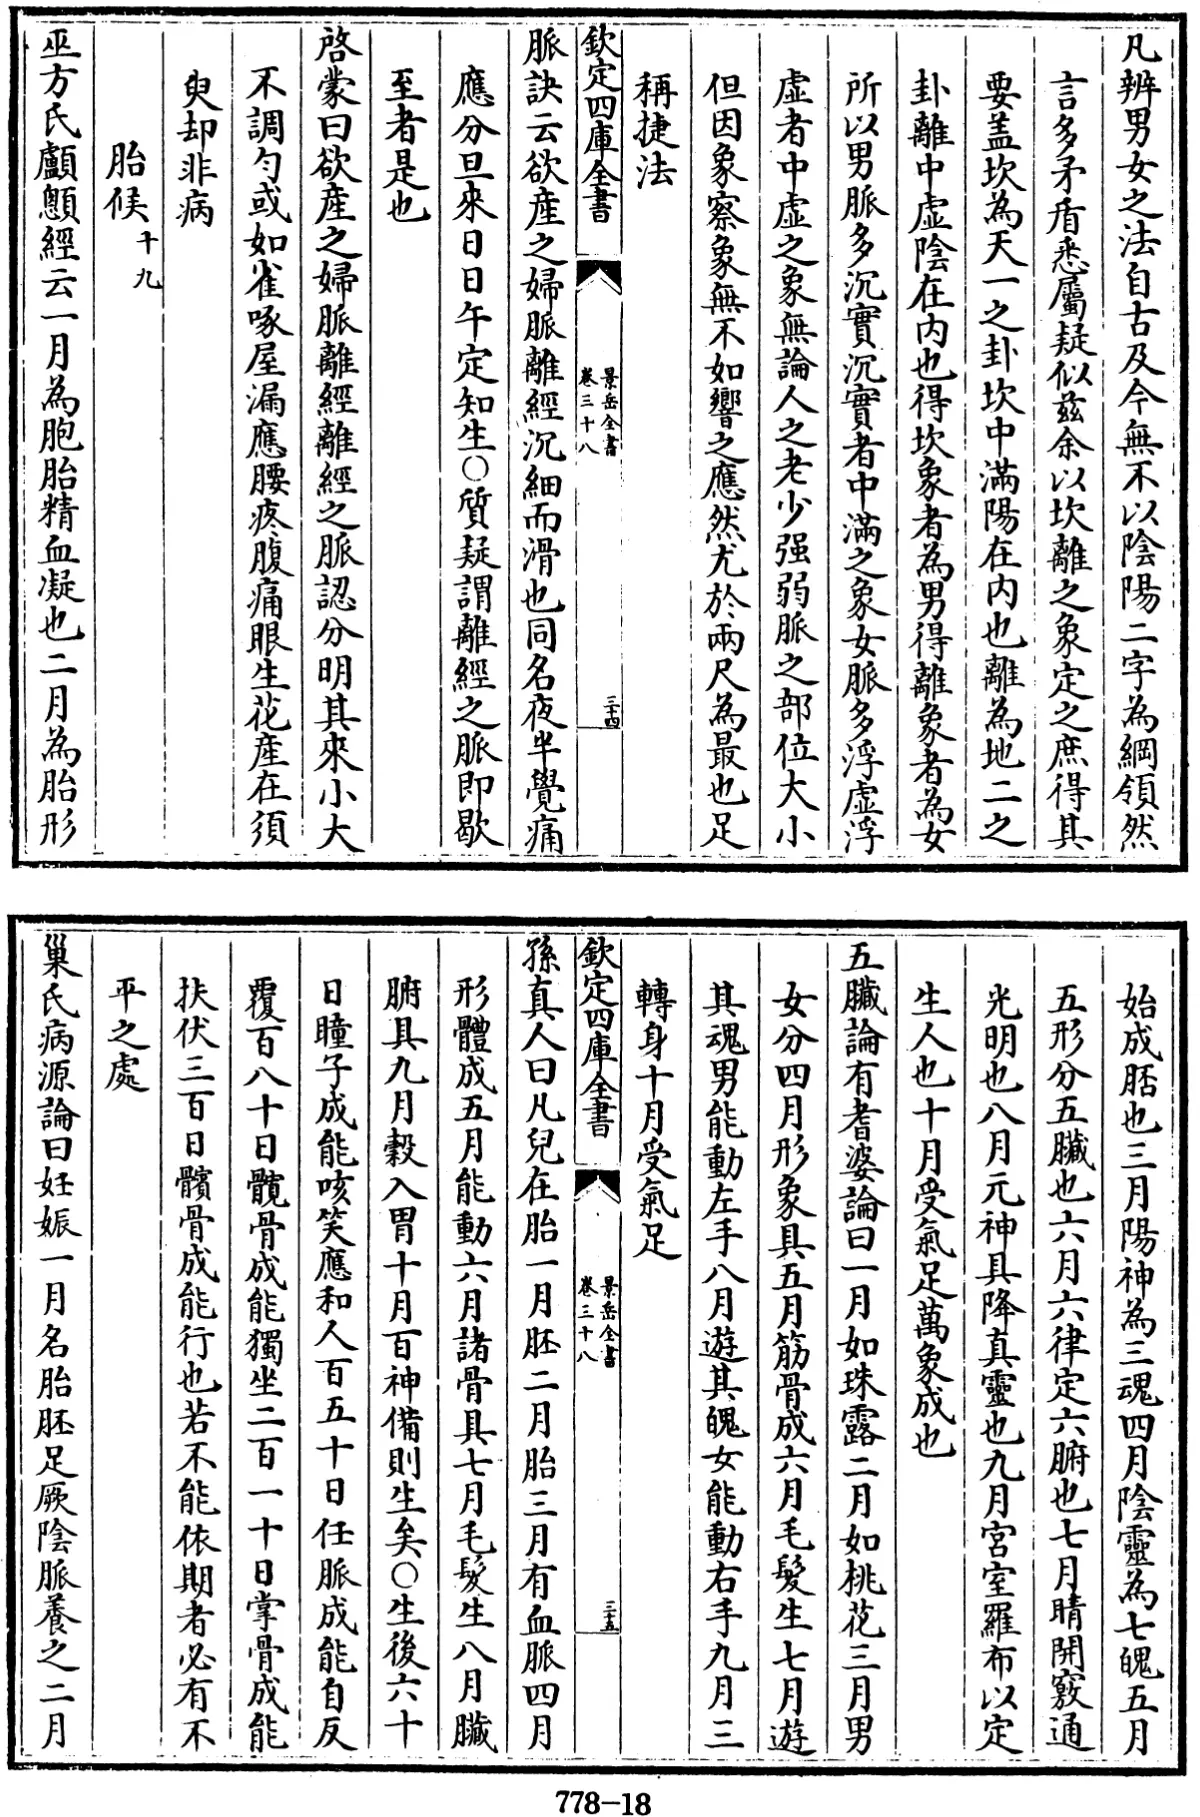 凡辨男女之法自古及今無不以陰陽二字為綱領然
言多矛盾悉屬疑似兹余以坎離之象定之庶得其
要蓋坎為天一之卦坎中滿陽在内也離為地二之
卦離中虛陰在内也得坎象者為男得離象者為女
所以男脈多沉實沉實者中滿之象女脈多浮虛浮
虛者中虛之象無論人之老少强弱脈之部位大小
但因象察象無不如響之應然尤於兩尺為最也足
稱捷法
欽定四庫全書
景岳全書
卷三十八
三十四
脈訣云欲産之婦脈離經沉細而滑也同名夜半覺痛
應分旦來日日午定知生○質疑謂離經之脈即歇
至者是也
啓蒙曰欲産之婦脈離經離經之脈認分明其來小大
不調勻或如雀啄屋漏應腰疼腹痛眼生花産在須
臾却非病
胎候十九
巫方氏顱顖經云一月為胞胎精血凝也二月為胎形
始成胚也三月陽神為三魂四月陰靈為七魄五月
五形分五臟也六月六律定六腑也七月睛開竅通
光明也八月元神具降真靈也九月宮室羅布以定
生人也十月受氣足萬象成也
五臟論有耆婆論曰一月如珠露二月如桃花三月男
女分四月形象具五月筋骨成六月毛髮生七月遊
其魂男能動左手八月遊其魄女能動右手九月三
轉身十月受氣足
欽定四庫全書
景岳全書
卷三十八
三十五
孫真人曰凡兒在胎一月胚二月胎三月有血脈四月
形體成五月能動六月諸骨具七月毛髮生八月臟
腑具九月穀入胃十月百神備則生矣○生後六十
日瞳子成能咳笑應和人百五十日任脈成能自反
覆百八十日髖骨成能獨坐二百一十日掌骨成能
扶伏三百日髕骨成能行也若不能依期者必有不
平之處
巢氏病源論曰妊娠一月名胎胚足厥陰脈養之二月
778-18